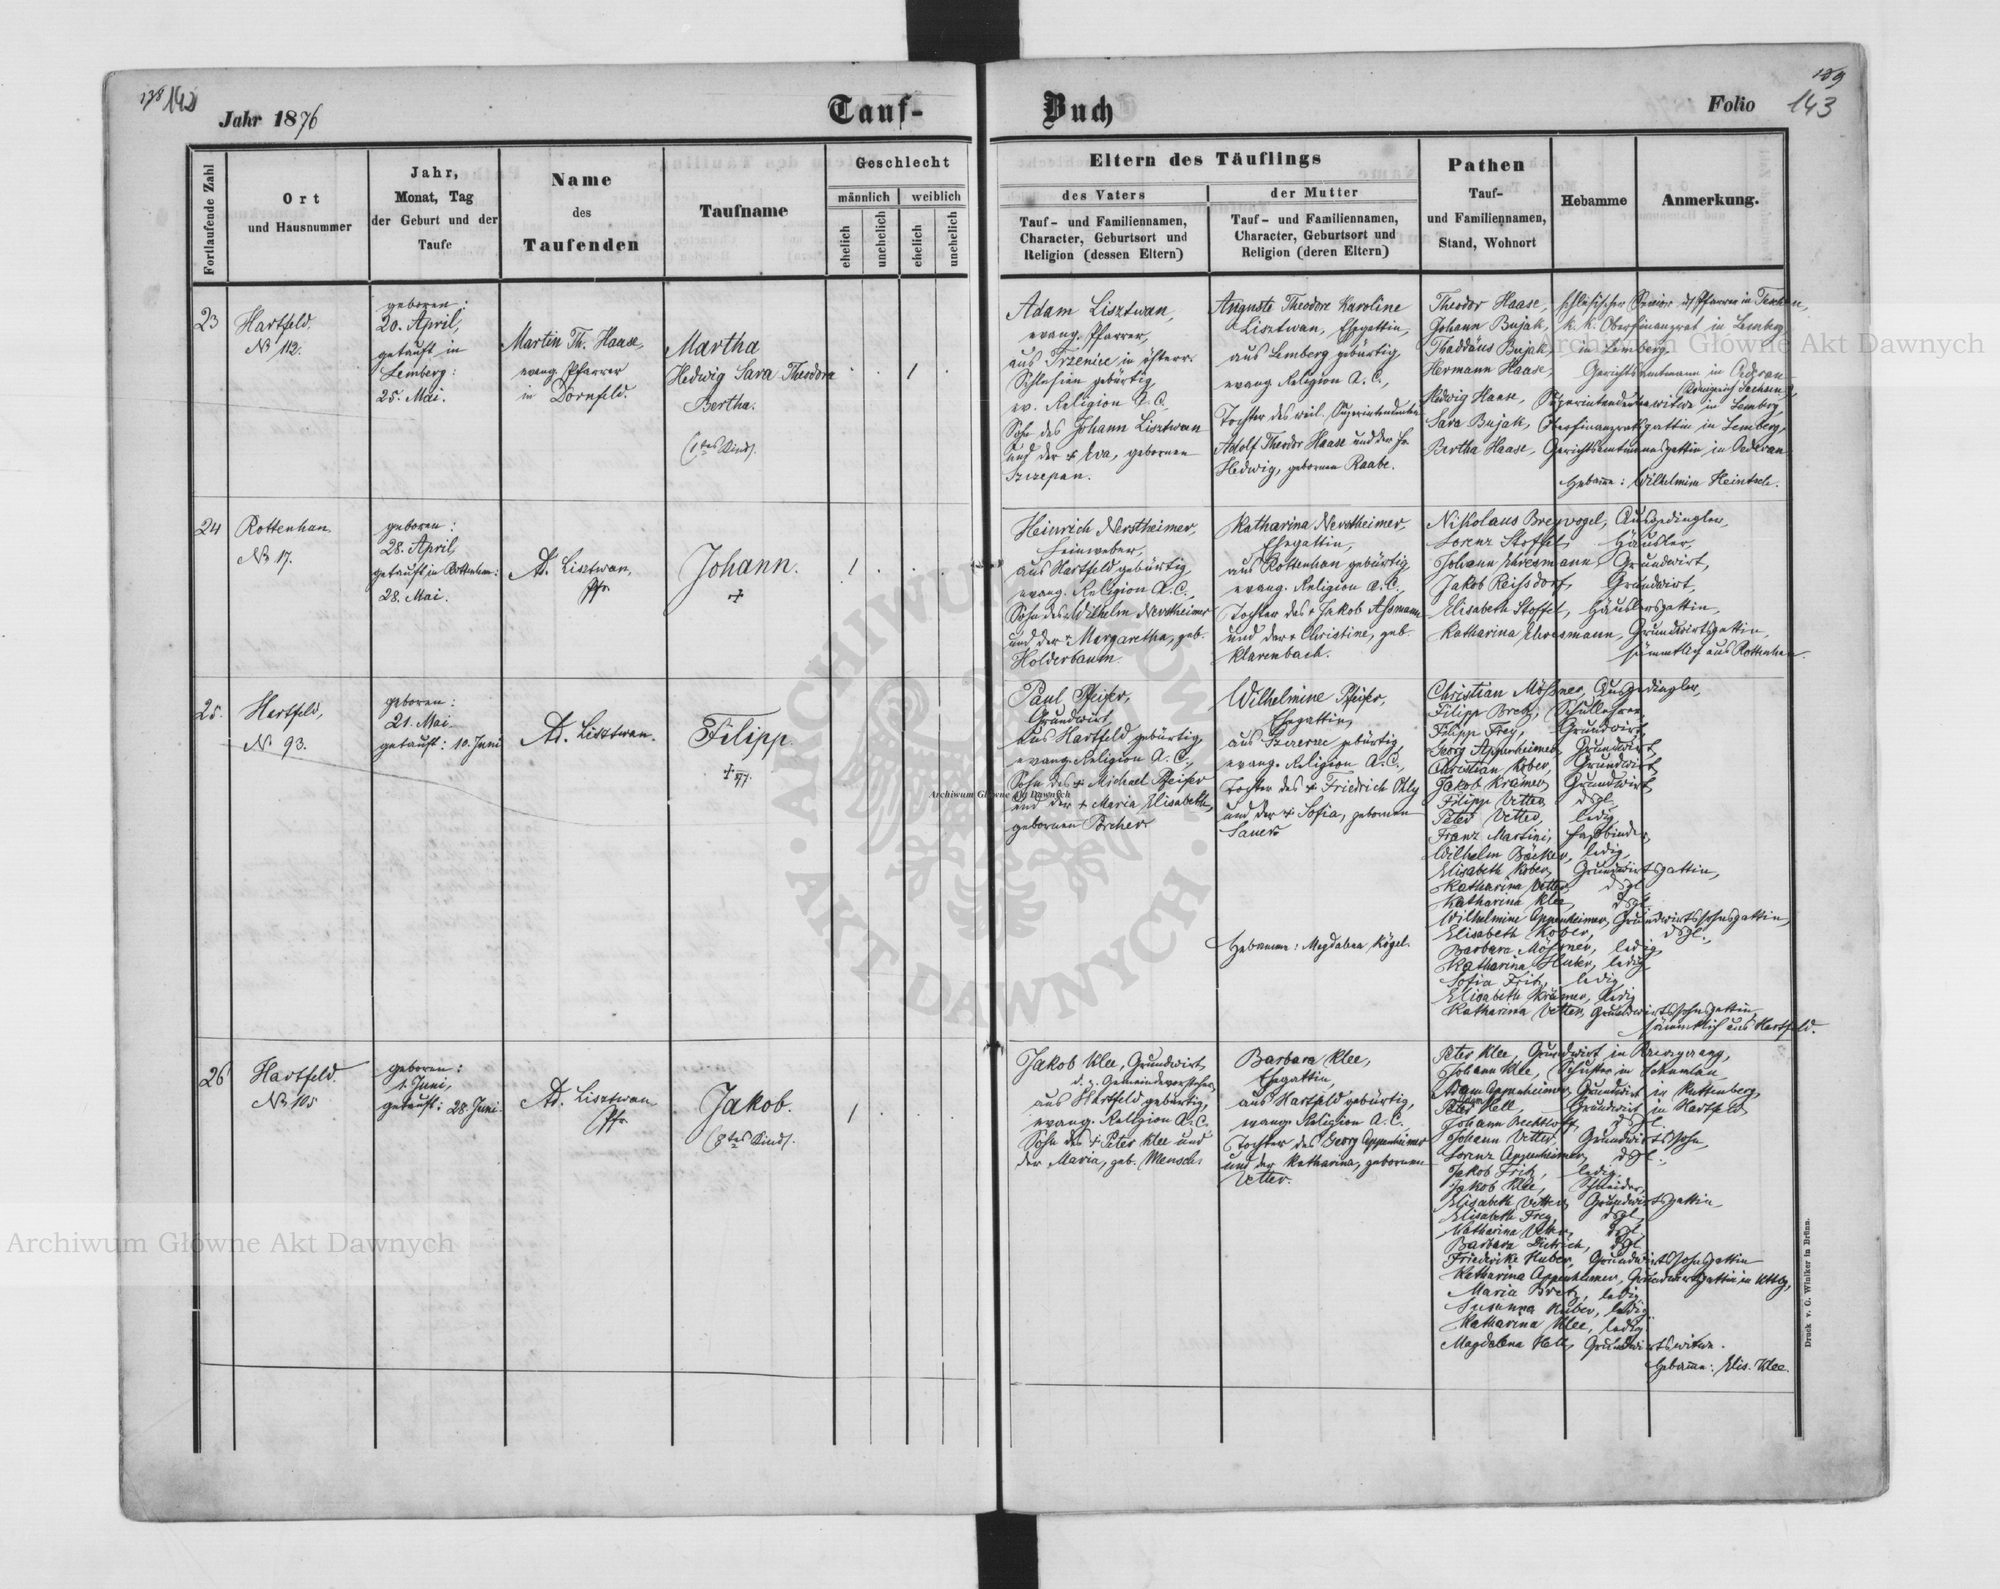 142
Jahr 1876
Tauf-
Buch
Folio
143
Fortlaufende Zahl
Ort
und Hausnummer
Jahr,
Monat, Tag
der Geburt und der
Taufe
Name
des
Taufenden
Taufname
Geschlecht
männlich
weiblich
ehelich
unehelich
ehelich
unehelich
Eltern des Täuflings
des Vaters
Tauf- und Familiennamen,
Character, Geburtsort und
Religion (dessen Eltern)
der Mutter
Tauf- und Familiennamen,
Character, Geburtsort und
Religion (deren Eltern)
Pathen
Tauf-
und Familiennamen,
Stand, Wohnort
Hebamme
Anmerkung.
23
Hartfeld.
No 112.
geboren:
20. April,
getauft in
Lemberg:
25. Mai.
Martin Th. Haase,
evang. Pfarrer
in Dornfeld.
Martha
Hedwig Sara Theodora
Bertha.
(1tes Kind).
1
Adam Lisztwan,
evang. Pfarrer,
aus Trzeniec in österr.
Schlesien gebürtig
ev. Religion A. C.,
Sohn des Johann Lisztwan
und der + Eva, gebornen
Szczepan.
Auguste Theodore Karoline
Lisztwan, Ehegattin,
aus Lemberg gebürtig,
evang. Religion A. C.,
Tochter des weil. Superintendenten
Adolf Theodor Haase und der
Hedwig, gebornen Raabe.
Theodor Haase, schlesischer Senior u. Pfarrer in Teschen,
Johann Bujak, k. k. Oberfinanzrat in Lemberg
Thaddäus Bujak, in Lemberg,
Hermann Haase, Gerichtsamtmann in Oederan
Königreich Sachsen
Hedwig Haase, Superintendentenwitwe in Lemberg,
Sara Bujak, Oberfinanzratsgattin in Lemberg,
Bertha Haase, Gerichtsamtmannsgattin in Oederan
Hebamme: Wilhelmine Heintsch.
24
Rottenhan
No 17.
geboren:
28. April,
getauft in Rottenhan:
28. Mai.
Ad. Lisztwan,
Pfr.
Johann.
+
1
Heinrich Nerstheimer,
Leinweber,
aus Hartfeld gebürtig
evang. Religion A. C.,
Sohn des + Wilhelm Nerstheimer
und der + Margaretha, geb.
Holderbaum
Katharina Nerstheimer,
Ehegattin,
aus Rottenhan gebürtig
evang. Religion A. C.,
Tochter des + Jakob Aßmann
und der + Christine, geb.
Klarenbach.
Nikolaus Breyvogel, Ausgedingler,
Lorenz Stoffel, Häusler,
Johann Ehresmann, Grundwirt,
Jakob Reißdorf, Grundwirt,
Elisabeth Stoffel, Häuslersgattin,
Katharina Ehresmann, Grundwirtsgattin,
sämmtlich aus Rottenhan.
25.
Hartfeld,
No. 93.
geboren:
21. Mai
getauft: 10. Juni
Ad. Lisztwan.
Filipp.
Paul Pfeifer,
Grundwirt,
aus Hartfeld gebürtig
evang. Religion A. C.,
Sohn des + Michael Pfeifer
und der + Maria Elisabeth,
gebornen Becher
Wilhelmine Pfeifer,
Ehegattin,
aus Szczerzec gebürtig
evang. Religion A. C.,
Tochter des + Friedrich Ohly
und der + Sofia, gebornen
Sauer
Hebamme: Magdalena Kögel.
Christian Mößner, Ausgedingler,
Filipp Bretz, Schullehrer
Filipp Frey, Grundwirt,
Georg Appenheimer, Grundwirt,
Christian Kober, Grundwirt,
Jakob Krämer, Grundwirt,
Filipp Vetter, dsgl.
Peter Vetter, ledig,
Franz Martini, Faßbinder,
Wilhelm Bäcker, ledig,
Elisabeth Kober, Grundwirtsgattin,
Katharina Vetter, dsgl.
Katharina Klee, dsgl.
Wilhelmine Appenheimer, Grundwirtssohnsgattin,
Elisabeth Kober, dsgl.,
Barbara Mößner, ledig,
Katharina Huber, ledig
Sofia Fritz, ledig,
Elisabeth Krämer, ledig
Katharina Vetter, Grundwirtssohnsgattin,
sämmtlich aus Hartfeld.
26
Hartfeld.
No 105
geboren:
1. Juni,
getauft: 28. Juni.
Ad. Lisztwan
Pfr.
Jakob.
(8tes Kind).
1
Jakob Klee, Grundwirt
d. z. Gemeindevorsteher,
aus Hartfeld gebürtig,
evang. Religion A. C.
Sohn des + Peter Klee und
der Maria, geb. Mensch
Barbara Klee,
Ehegattin,
aus Hartfeld gebürtig,
evang. Religion A. C.
Tochter des Georg Appenheimer
und der Katharina, gebornen
Vetter.
Peter Klee, Grundwirt in
Johann Klee, Schuster in
Adam Appenheimer, Grundwirt in Kuttenberg,
Peter Hell, Grundwirt in Hartfeld
Johann Bechtloff, dsgl.
Johann Vetter, Grundwirtssohn,
Lorenz Appenheimer, dsgl.,
Jakob Fritz, ledig,
Jakob Klee, Schneider,
Elisabeth Vetter, Grundwirtsgattin
Elisabeth Frey, dsgl.
Katharina Vetter, dsgl.
Barbara Dietrich, dsgl.
Friederike Huber, Grundwirtssohnsgattin
Katharina Appenheimer, Grundwirtsgattin in
Maria Bretz, ledig
Susanna Huber, ledig
Katharina Klee, ledig
Magdalena Hell, Grundwirtswitwe.
Hebamme: Elis. Klee.
Druck v. G. Winiker in Brünn.
Archiwum Główne Akt Dawnych
Archiwum Główne Akt Dawnych
Archiwum Główne Akt Dawnych
ARCHIWUM GŁÓWNE
AKT DAWNYCH